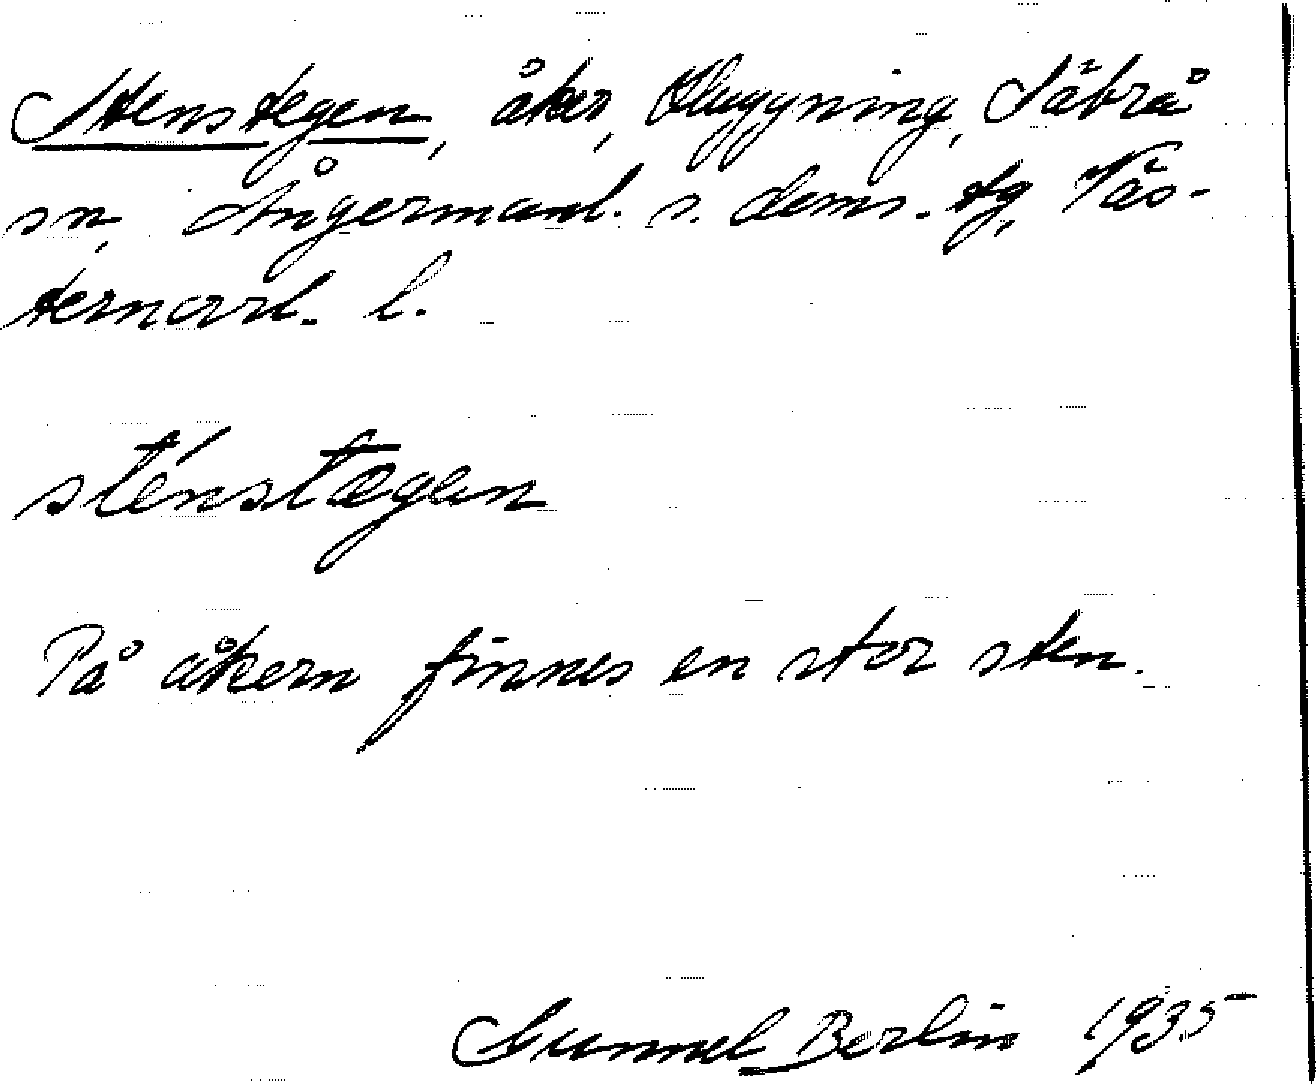 Stenstegen, åker, Uluggning, Säbrå
sn, Ångermanl. s. doms. tg, Väs-
ternorrl. l.
sténstægen
På åkern finnes en stor sten.
Gunnel Berlin 1935